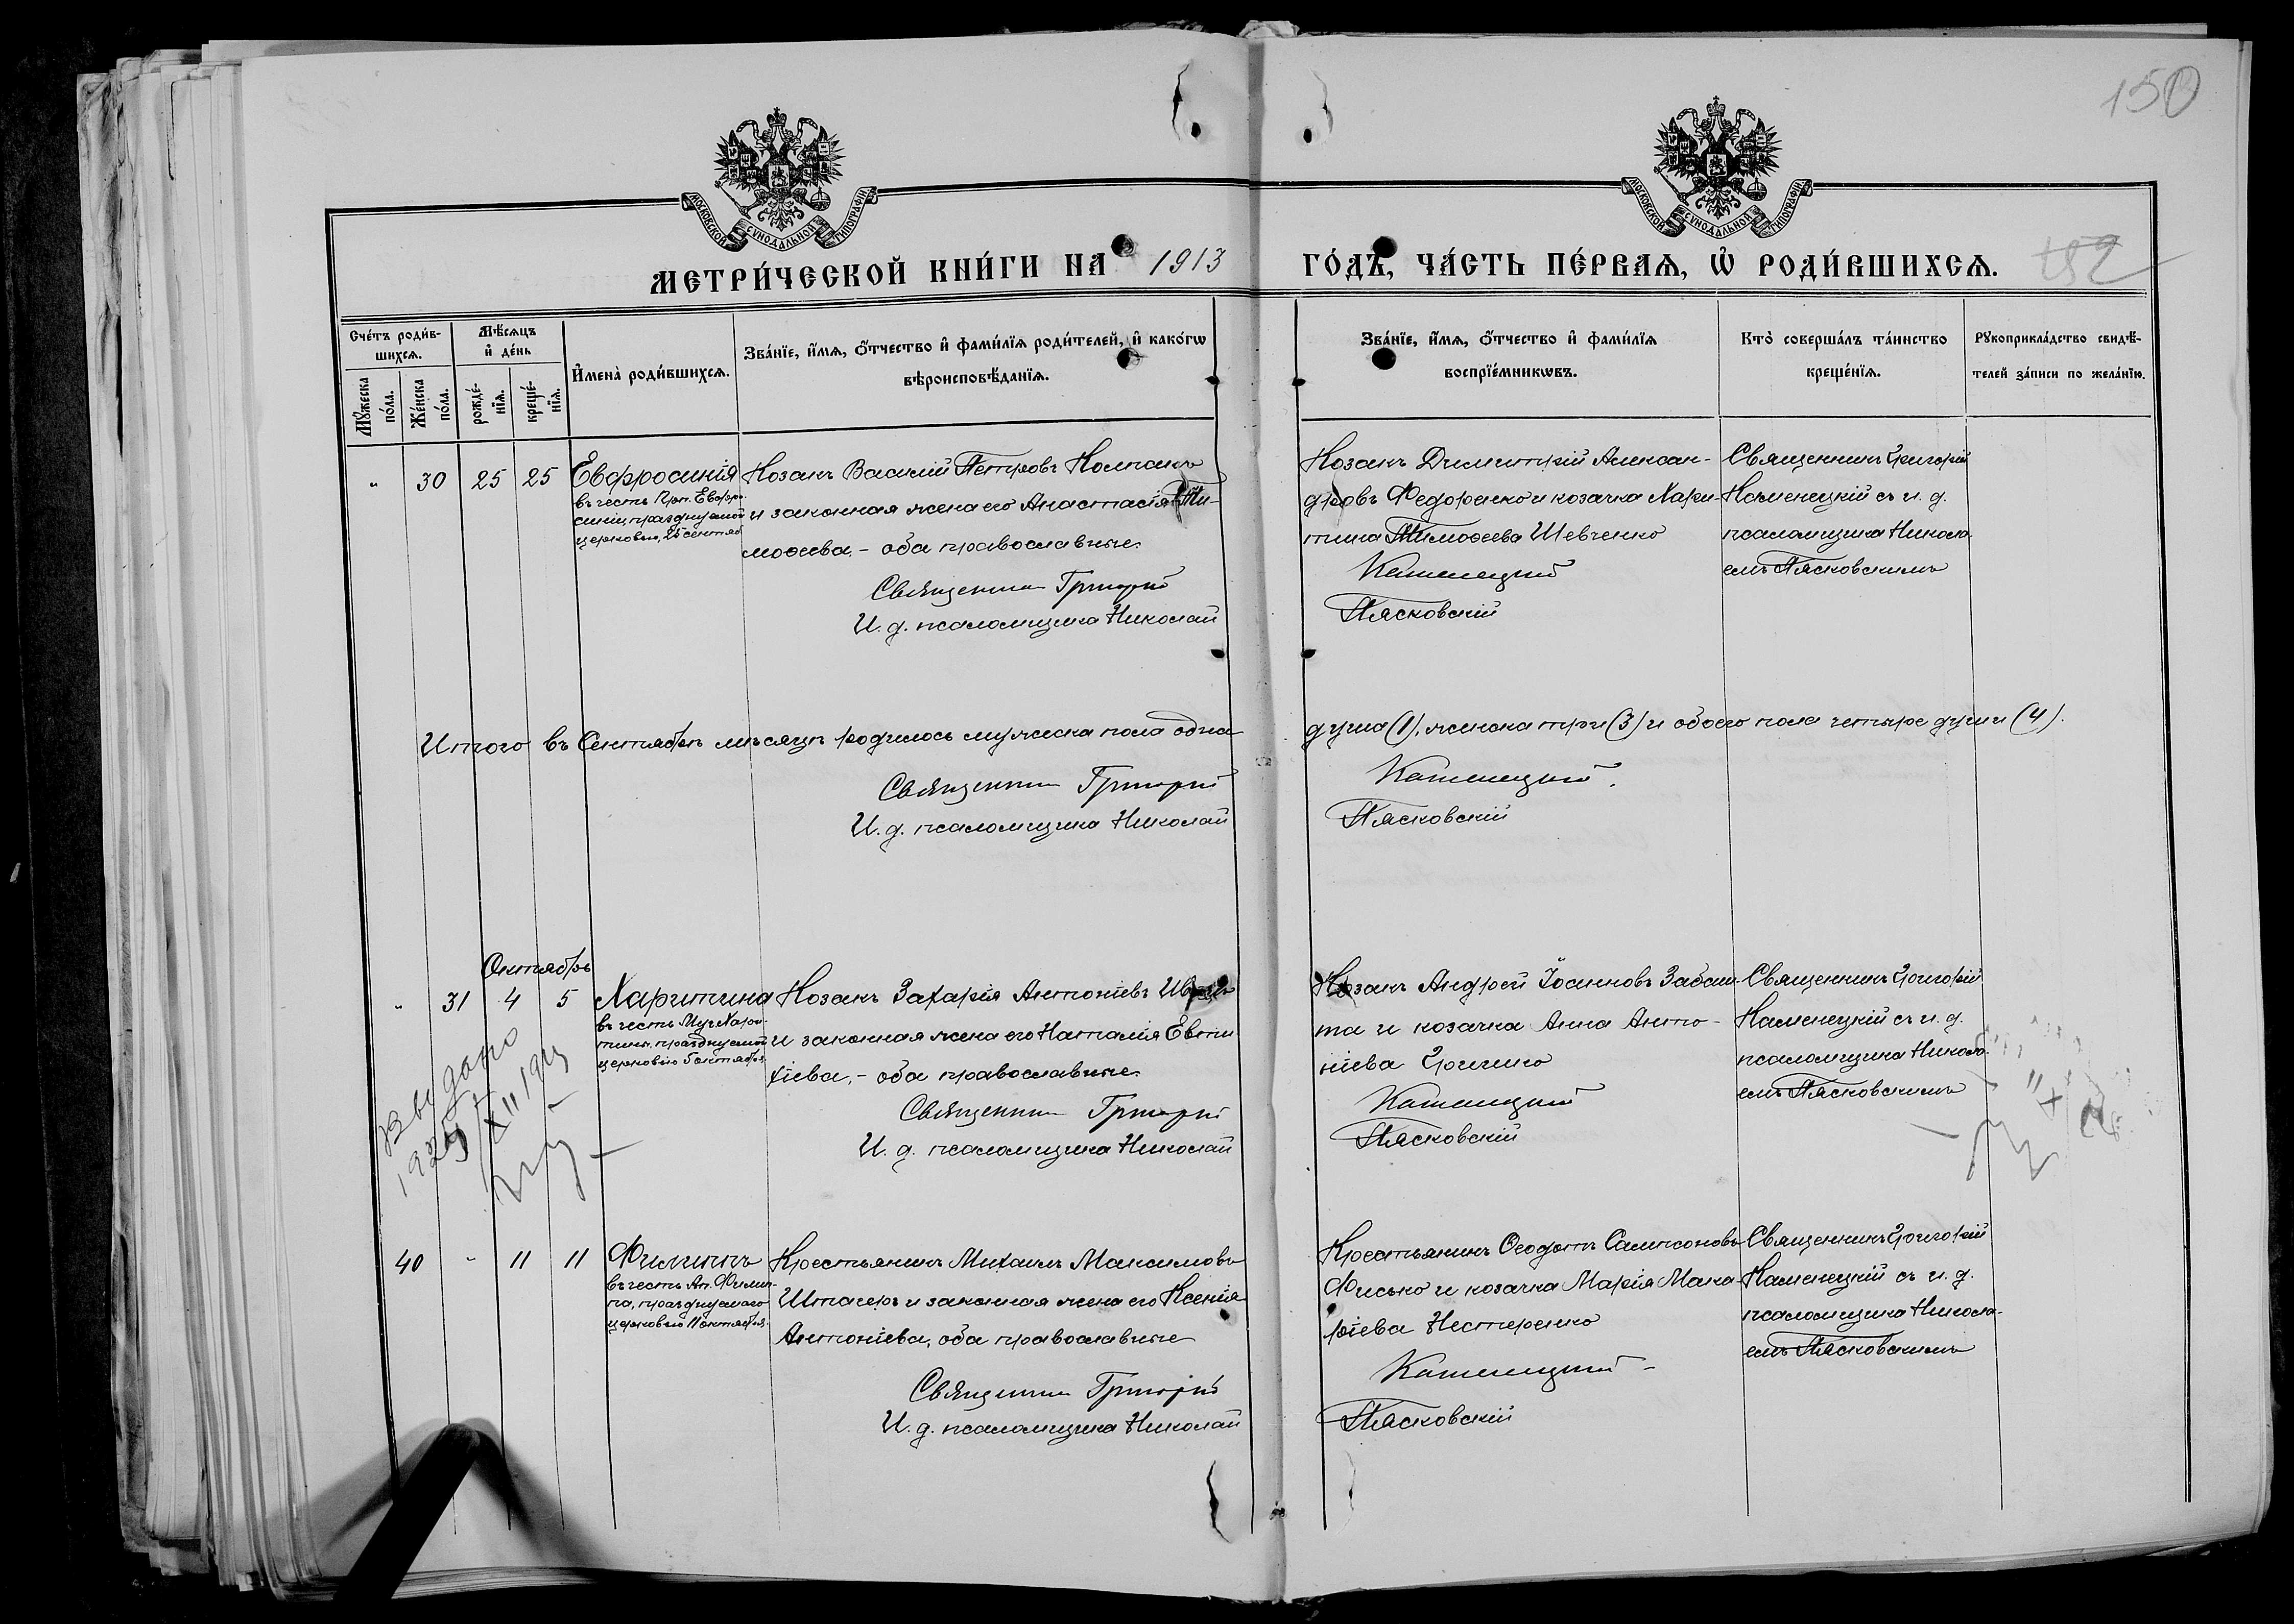 150
МОСКОВСКОЙ СѴНОДАЛЬНОЙ ТИПОГРАФІИ
МОСКОВСКОЙ СѴНОДАЛЬНОЙ ТИПОГРАФІИ
МЕТРИ́ЧЕСКОЙ КНИ́ГИ НА 1913
ГО́ДЪ, ЧА́СТЬ ПЕ́РВАѦ, Ѡ РОДИ́ВШИХСѦ.
152
Сче́тъ роди́в-
шихсѧ.
Мѣ́сѧцъ
и҆ де́нь
Мꙋ́жеска
по́ла.
Же́нска
по́ла.
рожде́-
нїѧ.
креще́-
нїѧ.
И҆мена̀ роди́вшихсѧ.
Зва́нїе, и҆́мѧ, ѻ҆́тчество и҆ фами́лїѧ роди́телей, и҆ како́гѡ
вѣроисповѣ́данїѧ.
Зва́нїе, и҆́мѧ, ѻ҆́тчество и҆ фами́лїѧ
воспрїе́мникѡвъ.
Кто̀ соверша́лъ та́инство
креще́нїѧ.
Рꙋкоприкла́дство свидѣ́-
телей за́писи по жела́нїю.
" 30 25 25
Евфросинія
въ честь Прп. Евфро-
синіи, празднуемой
церковью, 25 сентяб.
Козакъ Василій Петровъ Колпакъ
и законная жена его Анастасія Ти-
моѳеева, - оба православные.
Священник Григорій
И. д. псаломщика Николай
Козакъ Димитрій Алексан-
дровъ Федоренко и козачка Хари-
тина Тимоѳеева Шевченко
Каменецкій
Пясковскій
Священникъ Григорій
Каменецкій съ и. д.
псаломщика Никола-
емъ Пясковскимъ
Итого въ Сентябрѣ мѣсяцѣ родилось мужеска пола одна
душа (1), женска три (3) и обоего пола четыре души (4).
Священник Григорій
И. д. псаломщика Николай
Каменецкій.
Пясковскій
Октябрь
" 31 4 5
Харитина
въ честь Муч. Хари-
тины, празднуемой
церковью 5 октября.
Козакъ Захарія Антоніевъ
и законная жена его Наталія Евти
хіева, - оба православные.
Священник Григорій
И. д. псаломщика Николай
Козакъ Андрей Іоанновъ Забаш-
та и козачка Анна Анто-
ніева Гриценко
Каменецкій
Пясковскій
Священникъ Григорій
Каменецкій съ и. д.
псаломщика Никола-
емъ Пясковскимъ
выдано
40 " 11 11
Филиппъ
въ честь Ап. Филип-
па, празднуемаго
церковью 11 октября.
Крестьянинъ Михаилъ Максимовъ
и законная жена его Ксенія
Антоніева, оба православные
Священник Григорій
И. д. псаломщика Николай
Крестьянинъ Ѳеодотъ Сампсоновъ
Фисько и козачка Марія Мака-
ріева Нестеренко
Каменецкій
Пясковскій
Священникъ Григорій
Каменецкій съ и. д.
псаломщика Никола-
емъ Пясковскимъ